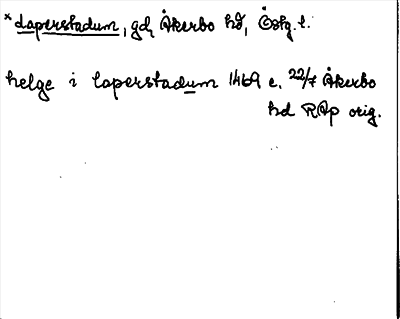 *Laperstadum, gd, Åkerbo hd, Östg. l.
helge i laperstadum 1469 e. 22/7 Åkerbo
hd RAp orig.